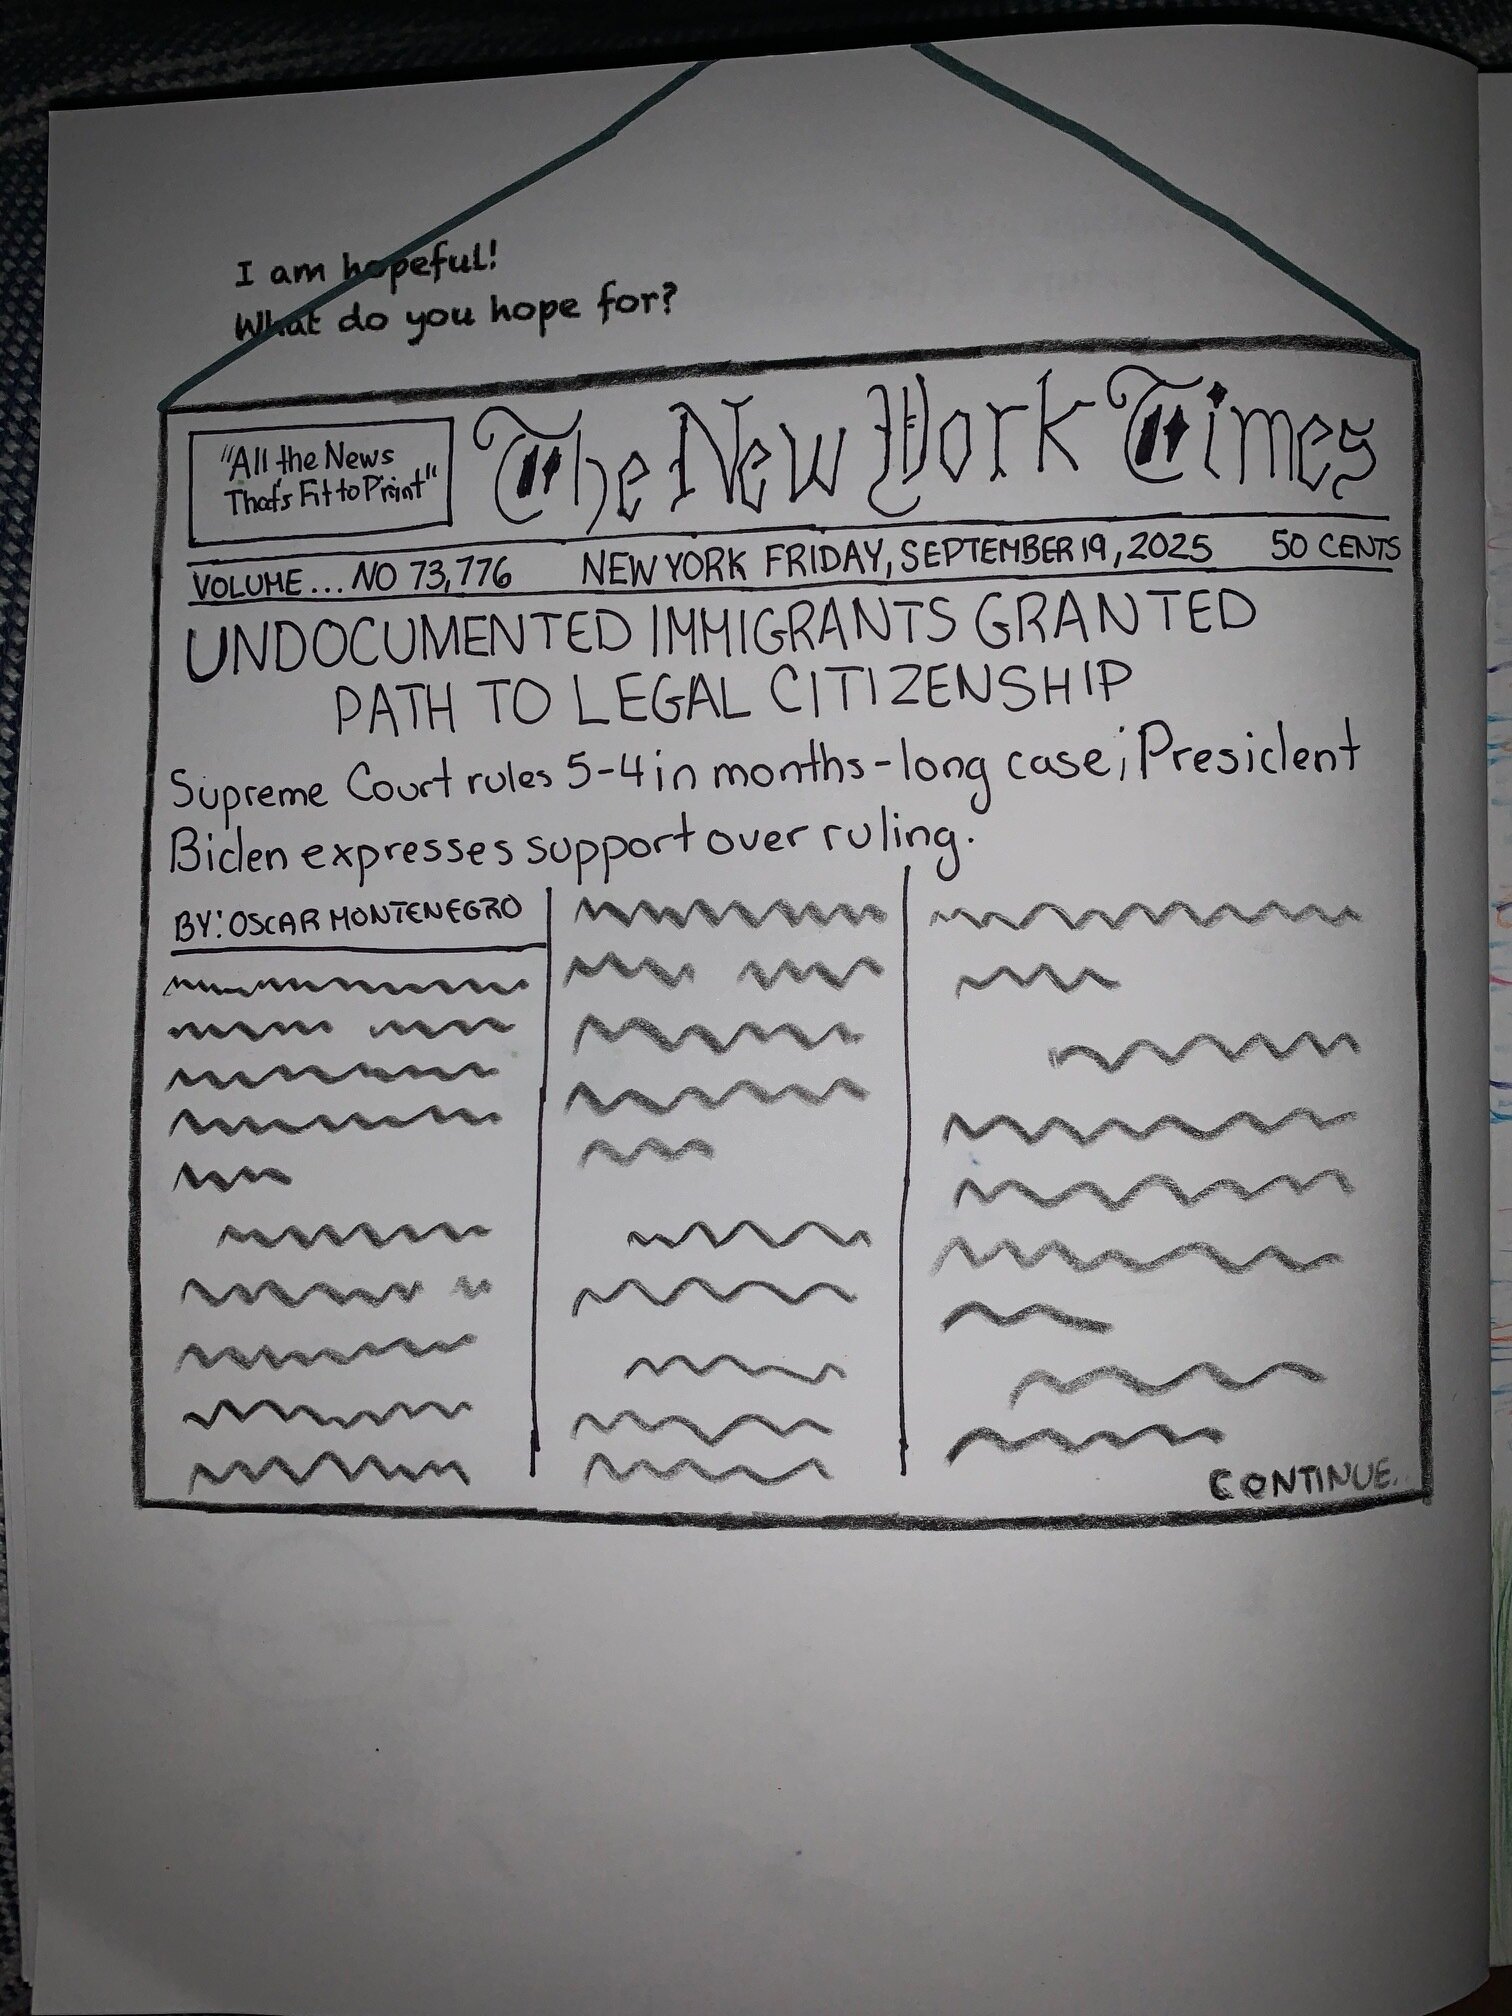 I am hopeful!
What do you hope for?
"All the News
That's Fit to Print"
The New York Times
VOLUME... NO 73,776 NEW YORK FRIDAY, SEPTEMBER 19, 2025 50 CENTS
UNDOCUMENTED IMMIGRANTS GRANTED
PATH TO LEGAL CITIZENSHIP
Supreme Court rules 5-4 in months-long case; President
Biden expresses support over ruling.
BY: OSCAR MONTENEGRO
CONTINUE..